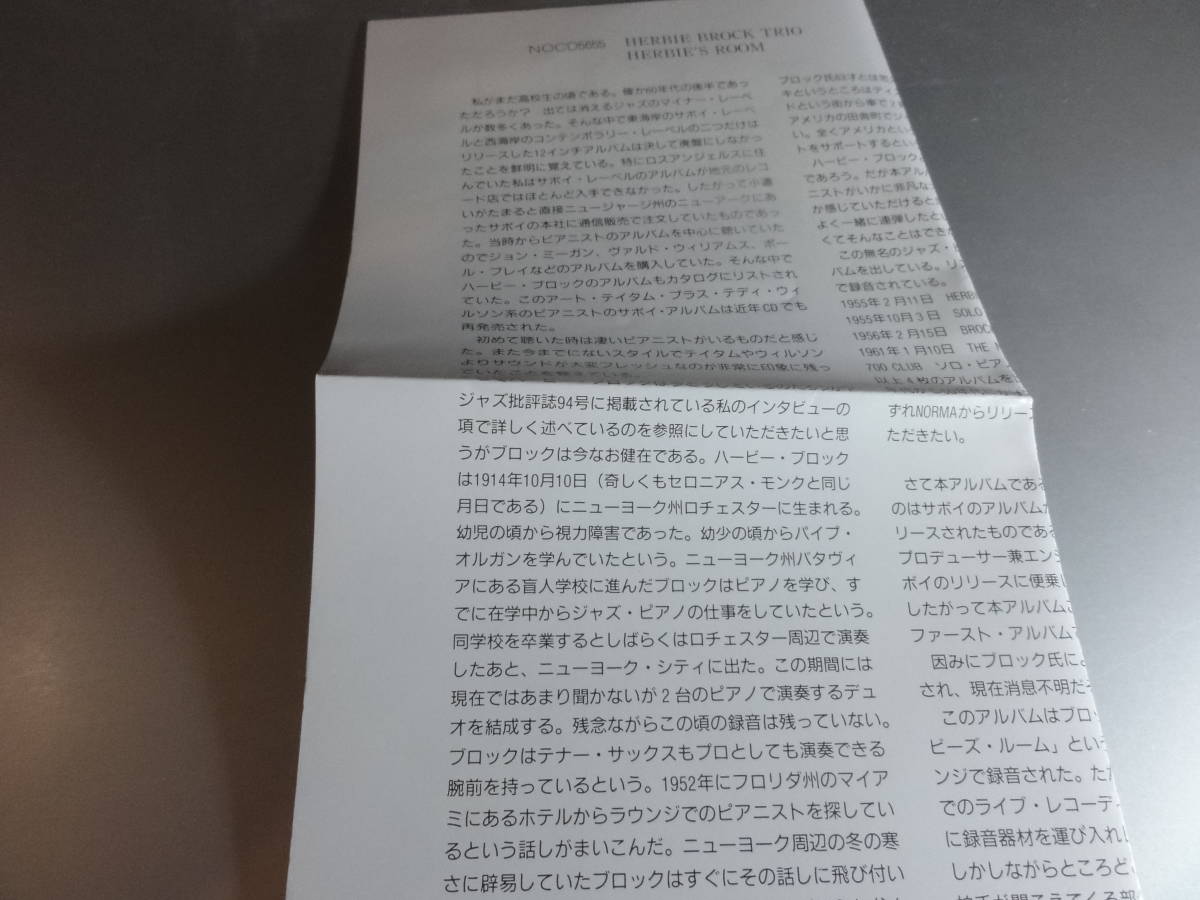 NOCD5655 HERBIE BROCK TRIO
HERBIE'S ROOM
私がまだ高校生の頃である。確か60年代の後半であっ
ただろうか？ 出ては消えるジャズのマイナー・レーベ
ルが数多くあった。そんな中で東海岸のサボイ・レーベ
ルと西海岸のコンテンポラリー・レーベルの二つだけは
リリースした12インチアルバムは決して廃盤にしなかっ
たことを鮮明に覚えている。特にロスアンジェルスに住
んでいた私はサボイ・レーベルのアルバムが地元のレコ
ード店ではほとんど入手できなかった。したがって小遣
いがたまると直接ニュージャージ州のニューアークにあ
ったサボイの本社に通信販売で注文していたものであっ
た。当時からピアニストのアルバムを中心に聴いていた
のでジョン・ミーガン、ヴァルド・ウィリアムス、ポー
ル・ブレイなどのアルバムを購入していた。そんな中で
ハービー・ブロックのアルバムもカタログにリストされ
ていた。このアート・テイタム・プラス・テディ・ウィ
ルソン系のピアニストのサボイ・アルバムは近年CDでも
再発売された。
初めて聴いた時は凄いピアニストがいるものだと感じ
た。また今までにないスタイルでテイタムやウィルソン
よりサウンドが大変フレッシュなのが非常に印象に残っ
ていたことを覚えている。
ジャズ批評誌94号に掲載されている私のインタビューの
項で詳しく述べているのを参照にしていただきたいと思
うがブロックは今なお健在である。ハービー・ブロック
は1914年10月10日（奇しくもセロニアス・モンクと同じ
月日である）にニューヨーク州ロチェスターに生まれる。
幼児の頃から視力障害であった。幼少の頃からパイプ・
オルガンを学んでいたという。ニューヨーク州バタヴィ
アにある盲人学校に進んだブロックはピアノを学び、す
でに在学中からジャズ・ピアノの仕事をしていたという。
同学校を卒業するとしばらくはロチェスター周辺で演奏
したあと、ニューヨーク・シティに出た。この期間には
現在ではあまり聞かないが2台のピアノで演奏するデュ
オを結成する。残念ながらこの頃の録音は残っていない。
ブロックはテナー・サックスもプロとしても演奏できる
腕前を持っているという。1952年にフロリダ州のマイア
ミにあるホテルからラウンジでのピアニストを探してい
るという話しがまいこんだ。ニューヨーク周辺の冬の寒
さに辟易していたブロックはすぐにその話しに飛び付い
ブロック氏
キというところはティ
ドという街から車で2
アメリカの田舎町で
い。全くアメリカとい
トをサポートするとい
ハービー・ブロック
であろう。だが本アル
ニストがいかに非凡な
か感じていただけると
よく一緒に連弾したとい
くてそんなことはでき
この無名のジャズ・
バムを出している。リ
で録音されている。
1955年2月11日 HERBI
1955年10月3日 SOLO
1956年2月15日 BROC
1961年1月10日 THE
700 CLUB ソロ・ピア
以上4枚のアルバムを
ずれNORMAからリリー
ただきたい。
さて本アルバムである
のはサボイのアルバム
リースされたものである
プロデューサー兼エン
ボイのリリースに便乗
したがって本アルバム
ファースト・アルバム
因みにブロック氏に
され、現在消息不明だ
このアルバムはブロ
ビーズ・ルーム」とい
ンジで録音された。た
でのライブ・レコーディ
に録音器材を運び入れ
しかしながらところど